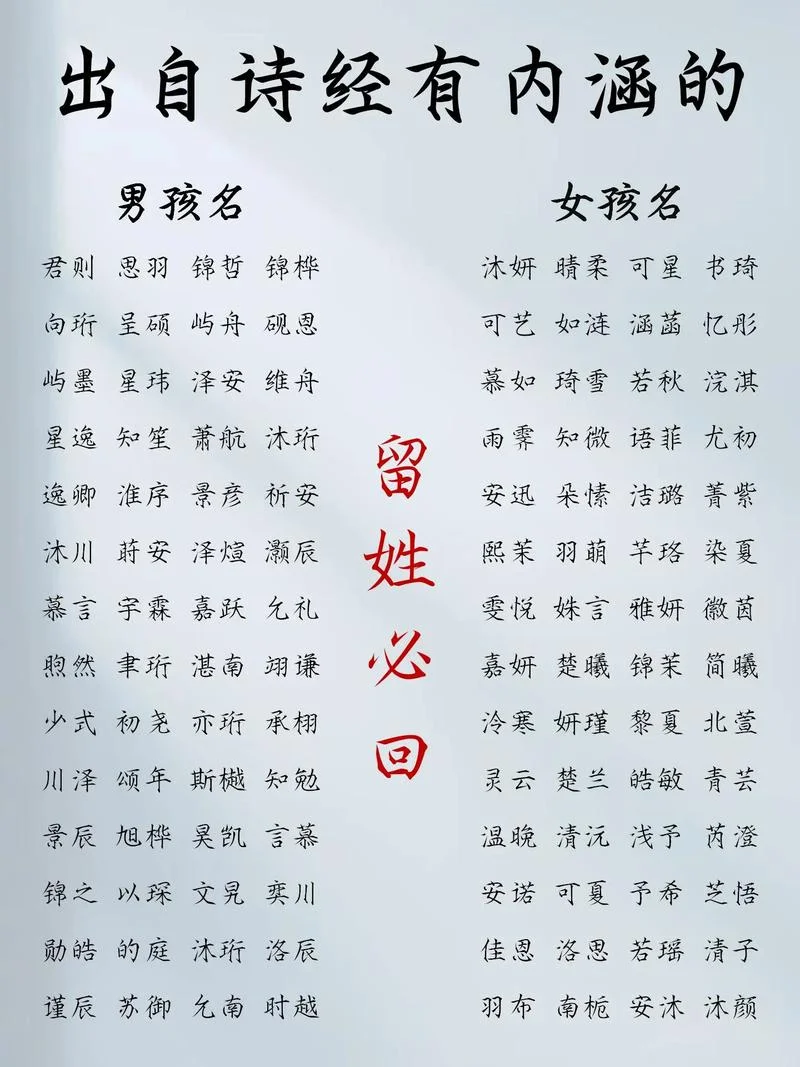 出自诗经有内涵的
男孩名
君则 思羽 锦哲 锦桦
向珩 呈硕 屿舟 砚恩
屿墨 星玮 泽安 维舟
星逸 知笙 萧航 沐珩
逸卿 淮序 景彦 祈安
沐川 莳安 泽煊 灏辰
慕言 宇霖 嘉跃 允礼
煦然 聿珩 湛南 翊谦
少式 初尧 亦珩 承栩
川泽 颂年 斯樾 知勉
景辰 旭桦 昊凯 言慕
锦之 以琛 文晃 奕川
勋皓 的庭 沐珩 洛辰
谨辰 苏御 允南 时越
留姓必回
女孩名
沐妍 晴柔 可星 书琦
可艺 如涟 涵菡 忆彤
慕如 琦雪 若秋 浣淇
雨霁 知微 语菲 尤初
安迅 朵愫 洁璐 菁紫
熙茉 羽萌 芊珞 染夏
雯悦 姝言 雅妍 徽茵
嘉妍 楚曦 锦茉 简曦
泠寒 妍瑾 黎夏 北萱
灵云 楚兰 皓敏 青芸
温晚 清沅 浅予 芮澄
安诺 可夏 予希 芝悟
佳恩 洛思 若瑶 清子
羽布 南栀 安沐 沐颜